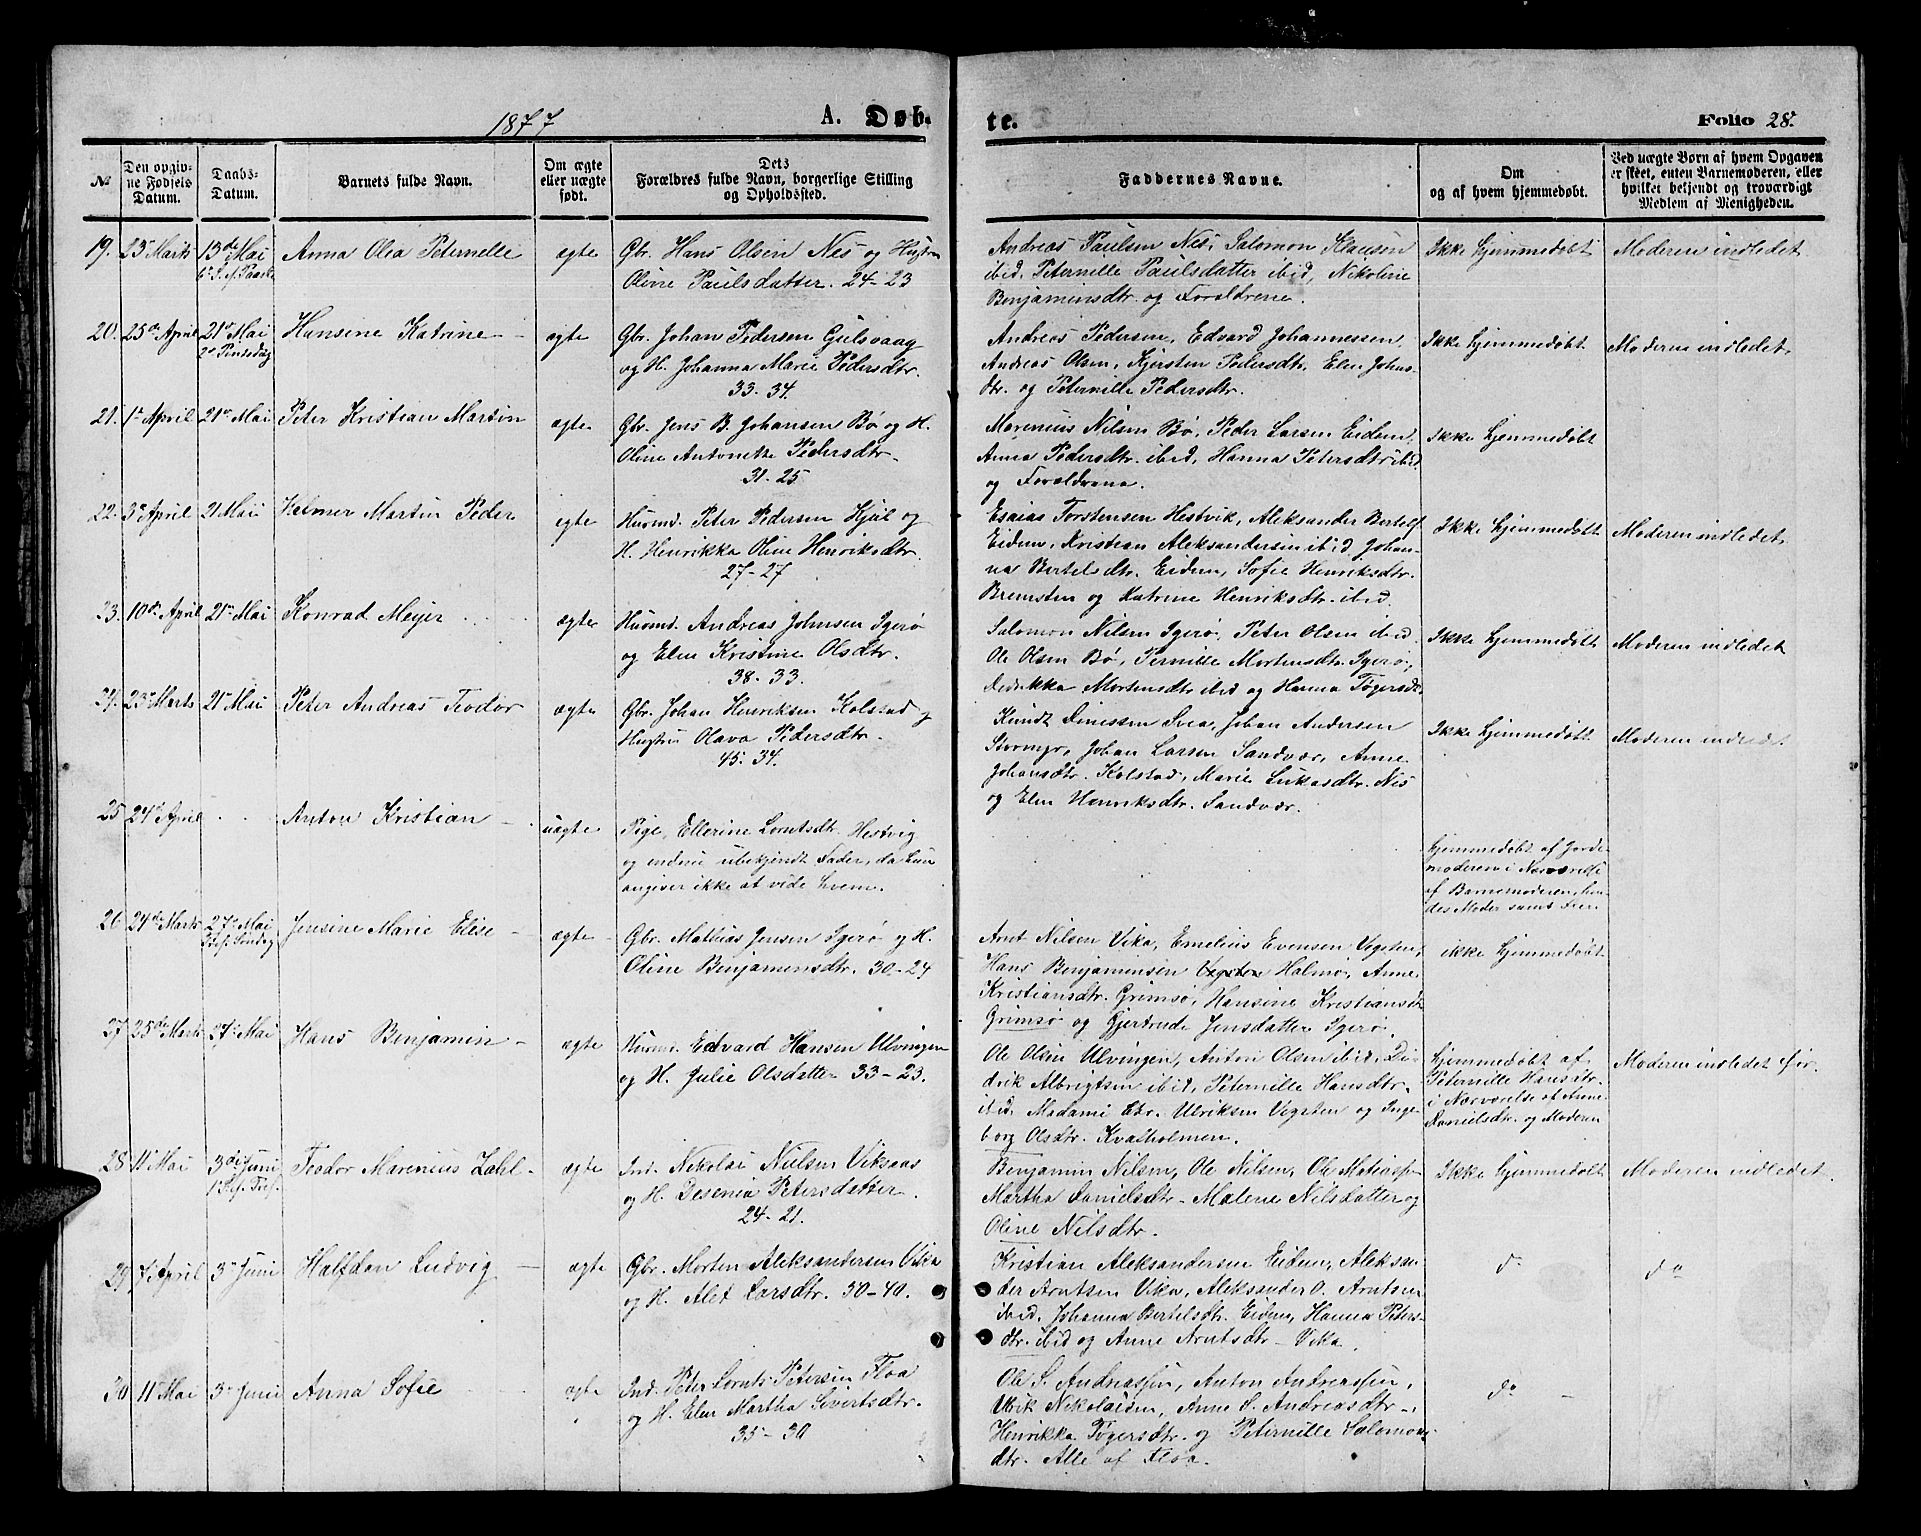 1877 A. Døb-
te. Folio 28.
№
Den opgiv-
ne Fødsels
Datum.
Daabs-
Datum.
Barnets fulde Navn.
Om ægte
eller uægte
født.
Dets
Forældres fulde Navn, borgerlige Stilling
og Opholdssted.
Faddernes Navne.
Om
og af hvem hjemmedøbt.
Ved uægte Børn af hvem Opgaven
er skeet, enten Barnemoderen, eller
hvilket bekjendt og troværdigt
Medlem af Menigheden.
19. 23 Marts 13de Mai
6 S. f. Paaske
Anna Olea Peternelle
ægte
Gbr. Hans Olsen Nes og Hustru
Oline Paulsdatter. 24-23
Andreas Paulsen Nes, Salomon Klausen
ibid, Peternille Paulsdatter ibid, Nikoline
Benjaminsdtr. og Forældrene.
Ikke hjemmedøbt
Moderen indledet.
20. 25de April 21de Mai
2de Pinsedag
Hansine Katrine
ægte
Gbr. Johan Pedersen Gulsvaag
og H. Johanna Marie Pedersdtr.
33. 34.
Andreas Pedersen, Edvard Johannessen,
Andreas Olsen, Kjersten Pedersdtr, Elen Johns-
dtr. og Peternille Pedersdtr.
Ikke hjemmedøbt
Moderen indledet.
21. 1ste April 21de Mai
Peter Kristian Martin
ægte
Gbr. Jens B. Johansen Bø og H.
Oline Antonette Pedersdtr.
31-25
Marenius Nilsen Bø, Peder Larsen Eidem,
Anna Pedersdtr. ibid, Hanna Petersdtr ibid
og Forældrene.
Ikke hjemmedøbt
22. 3de April 21 Mai
Helmer Martin Peder
egte
Huusmd. Peter Pedersen Hjul og
H. Henrikka Oline Henriksdtr.
27-27
Esaias Torstensen Hestvik, Aleksander Bertels.
Eidem, Kristian Aleksandersen ibid, Johan-
na Bertelsdtr. Eidem, Sofie Henriksdtr.
Bremsten og Katrine Henriksdtr. ibid.
Ikke hjemmedøbt
Moderen indledet.
23. 10de April 21de Mai
Konrad Meyer
ægte
Huusmd. Andreas Johnsen Igerø
og Elen Kristine Olsdtr.
38-33.
Salomon Nilsen Igerø, Peter Olsen ibid.
Ole Olsen Bø, Pernille Mortensdtr. Igerø,
Didrikka Mortensdtr ibid og Hanna Tøgersdtr.
Ikke hjemmedøbt
Moderen indledet
24. 23de Marts 21de Mai
Peter Andreas Teodor
ægte
Gbr. Johan Henriksen Kolstad og
Hustru Olava Pedersdtr.
45. 34.
Knudt Dinessen Svea, Johan Andersen
Stormyr, Johan Larsen Sandvær, Anne
Johansdtr. Kolstad, Marie Lukasdtr. Nes
og Elen Henriksdtr. Sandvær.
Ikke hjemmedøbt
Moderen indledt.
25 24de April
Anton Kristian
uægte
Pige, Ellerine Lorntsdtr. Hestvig
og endnu ubekjendt Fader, da hun
angiver ikke at vide hvem.
hjemmedøbt af Jorde-
moderen i Nærværelse
af Barnemoderen, hen-
des Moder samt Fler.
26 24de Marts 27de Mai
Tref. Søndag
Jensine Marie Elise
ægte
Gbr. Mathias Jensen Igerø og H.
Oline Benjaminsdtr. 30-24
Arnt Nilsen Vika, Emelius Evensen Vegsten,
Hans Benjaminsen Vegsten Halmø, Anne
Kristiansdtr. Grimsø, Hansine Kristiansdtr
Grimsø og Gjertrude Jensdatter Igerø.
ikke hjemmedøbt
27 25de Marts 27de Mai
Hans Benjamin
ægte
Huusmd. Edvard Hansen Ulvingen
og H. Julie Olsdatter 33-23.
Ole Oline Ulvingen, Anton Olsen ibid, Di-
drik Albrigtsen ibid, Peternille Hansdtr.
ibid. Madame Chr. Ulriksen Vegsten og Inge-
borg Olsdtr. Kvalholmen.
hjemmedøbt af
Peternille Hansdtr.
i Nærværelse af Anne
Danielsdtr. og Moderen
Moderen indledet før.
28 11te Mai 3die Juni
1 S. f. Tref.
Teodor Marenius Zahl
ægte
Ind. Nikolai Nielsen Viksaas
og H. Desenia Petersdatter.
24-21.
Benjamin Nilsen, Ole Nilsen, Ole Matiass-
Martha Danielsdtr. Malene Nilsdatter og
Oline Nilsdtr.
Ikke hjemmedøbt
Moderen indledet.
29 7 April 3de Juni
Halfdan Ludvig
ægte
Gbr. Morten Aleksandersen Vika
og H. Alet Larsdtr. 30-40.
Kristian Aleksandersen Eidem, Aleksan-
der Arntsen Vika, Aleksander O. Arntsen
ibid, Johanna Bertelsdtr. Eidem, Hanna Peters-
dtr. ibid og Anne Arntsdtr - Vika.
do
do
30 11te Mai 3de Juni
Anna Sofie
ægte
Ind. Peter Lornts Petersen Floa
og H. Elen Martha Sivertsdtr.
35-30
Ole S. Andreassen, Anton Andreassen,
Ulrik Nikolaisen, Anne S. Andreasdtr-,
Henrikka Tøgersdtr. og Peternille Salomons-
dtr. Alle af Floa.
do